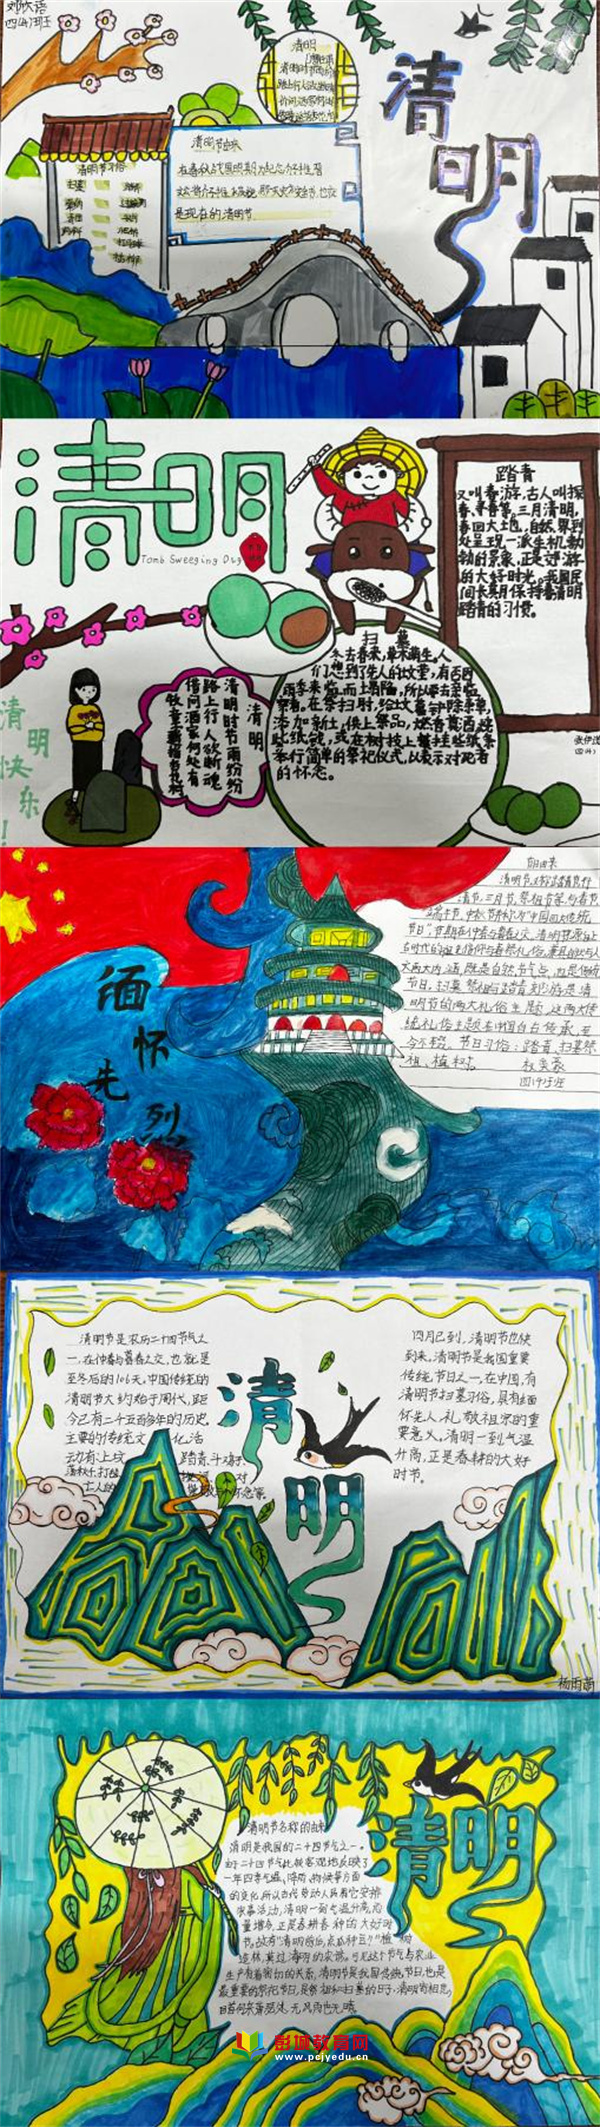 四(4)班
清明
清明
清明节由来
在春秋战国时期为纪念介子推,晋
是现在的清明节.
清明节习俗
清明
Tomb Sweeping Day
踏青
又叫春游,古人叫探
春、寻春等。三月清明,
春回大地,自然界到
处呈现一派生机勃
勃的景象,正是郊游
的大好时光。我国民
间长期保持着清明
踏青的习惯。
扫墓
冬去春来,草木萌生。人
们想到了先人的坟茔,有否因
雨季来临而塌陷,所以要去亲临
察看。在祭扫时,给坟墓铲除杂草,
添加新土,供上祭品,燃香奠酒,烧
些纸钱,或在树枝上挂些纸条
举行简单的祭祀仪式,以表示对死者
的怀念。
清明
清明时节雨纷纷
路上行人欲断魂
借问酒家何处有
牧童遥指杏花村
清明快乐!
四(4)
缅怀先烈
节日由来
清明节又称踏青节、行
清节、三月节、祭祖节等,与春节、
端午节、中秋节并称为“中国四大传统
节日”。节期在仲春与暮春之交。清明节源自上
古时代的祖先信仰与春祭礼俗,兼具自然与人
文两大内涵,既是自然节气点,也是传统
节日,扫墓祭祖与踏青郊游是清
明节的两大礼俗主题,这两大传
统礼俗主题在中国自古传承,至
今不辍。节日习俗:踏青、扫墓祭
祖、植树。
清明
清明节是农历二十四节气之
一,在仲春与暮春之交,也就是
至冬后的106天,中国传统的
清明节大约始于周代,距
今已有二千五百多年的历史
主要的传统文化活
动有:上坟、踏青、斗鸡、
四月已到,清明节也快
到来。清明节是我国重要
传统节日之一,在中国,有
清明节扫墓习俗,具有缅
怀先人、礼敬祖宗的重
要意义。清明一到气温
升高,正是春耕的大好
时节。
杨雨萌
清明
清明节名称的由来
清明是我国的二十四节气之一。
由于二十四节气比较客观地反映了
一年四季气温、降雨、物候等方面
的变化,所以古代劳动人民用它安排
农事活动,清明一到气温升高,雨
量增多,正是春耕春种的大好时
节。故有“清明前后,点瓜种豆”“植树
造林,莫过清明”的农谚。可见这个节气与农业
生产有着密切的关系,清明节是我国传统节日,也是
最重要的祭祀节日,是祭祖和扫墓的日子,清明寄相思,
彭城教育网
www.pcjyedu.cn